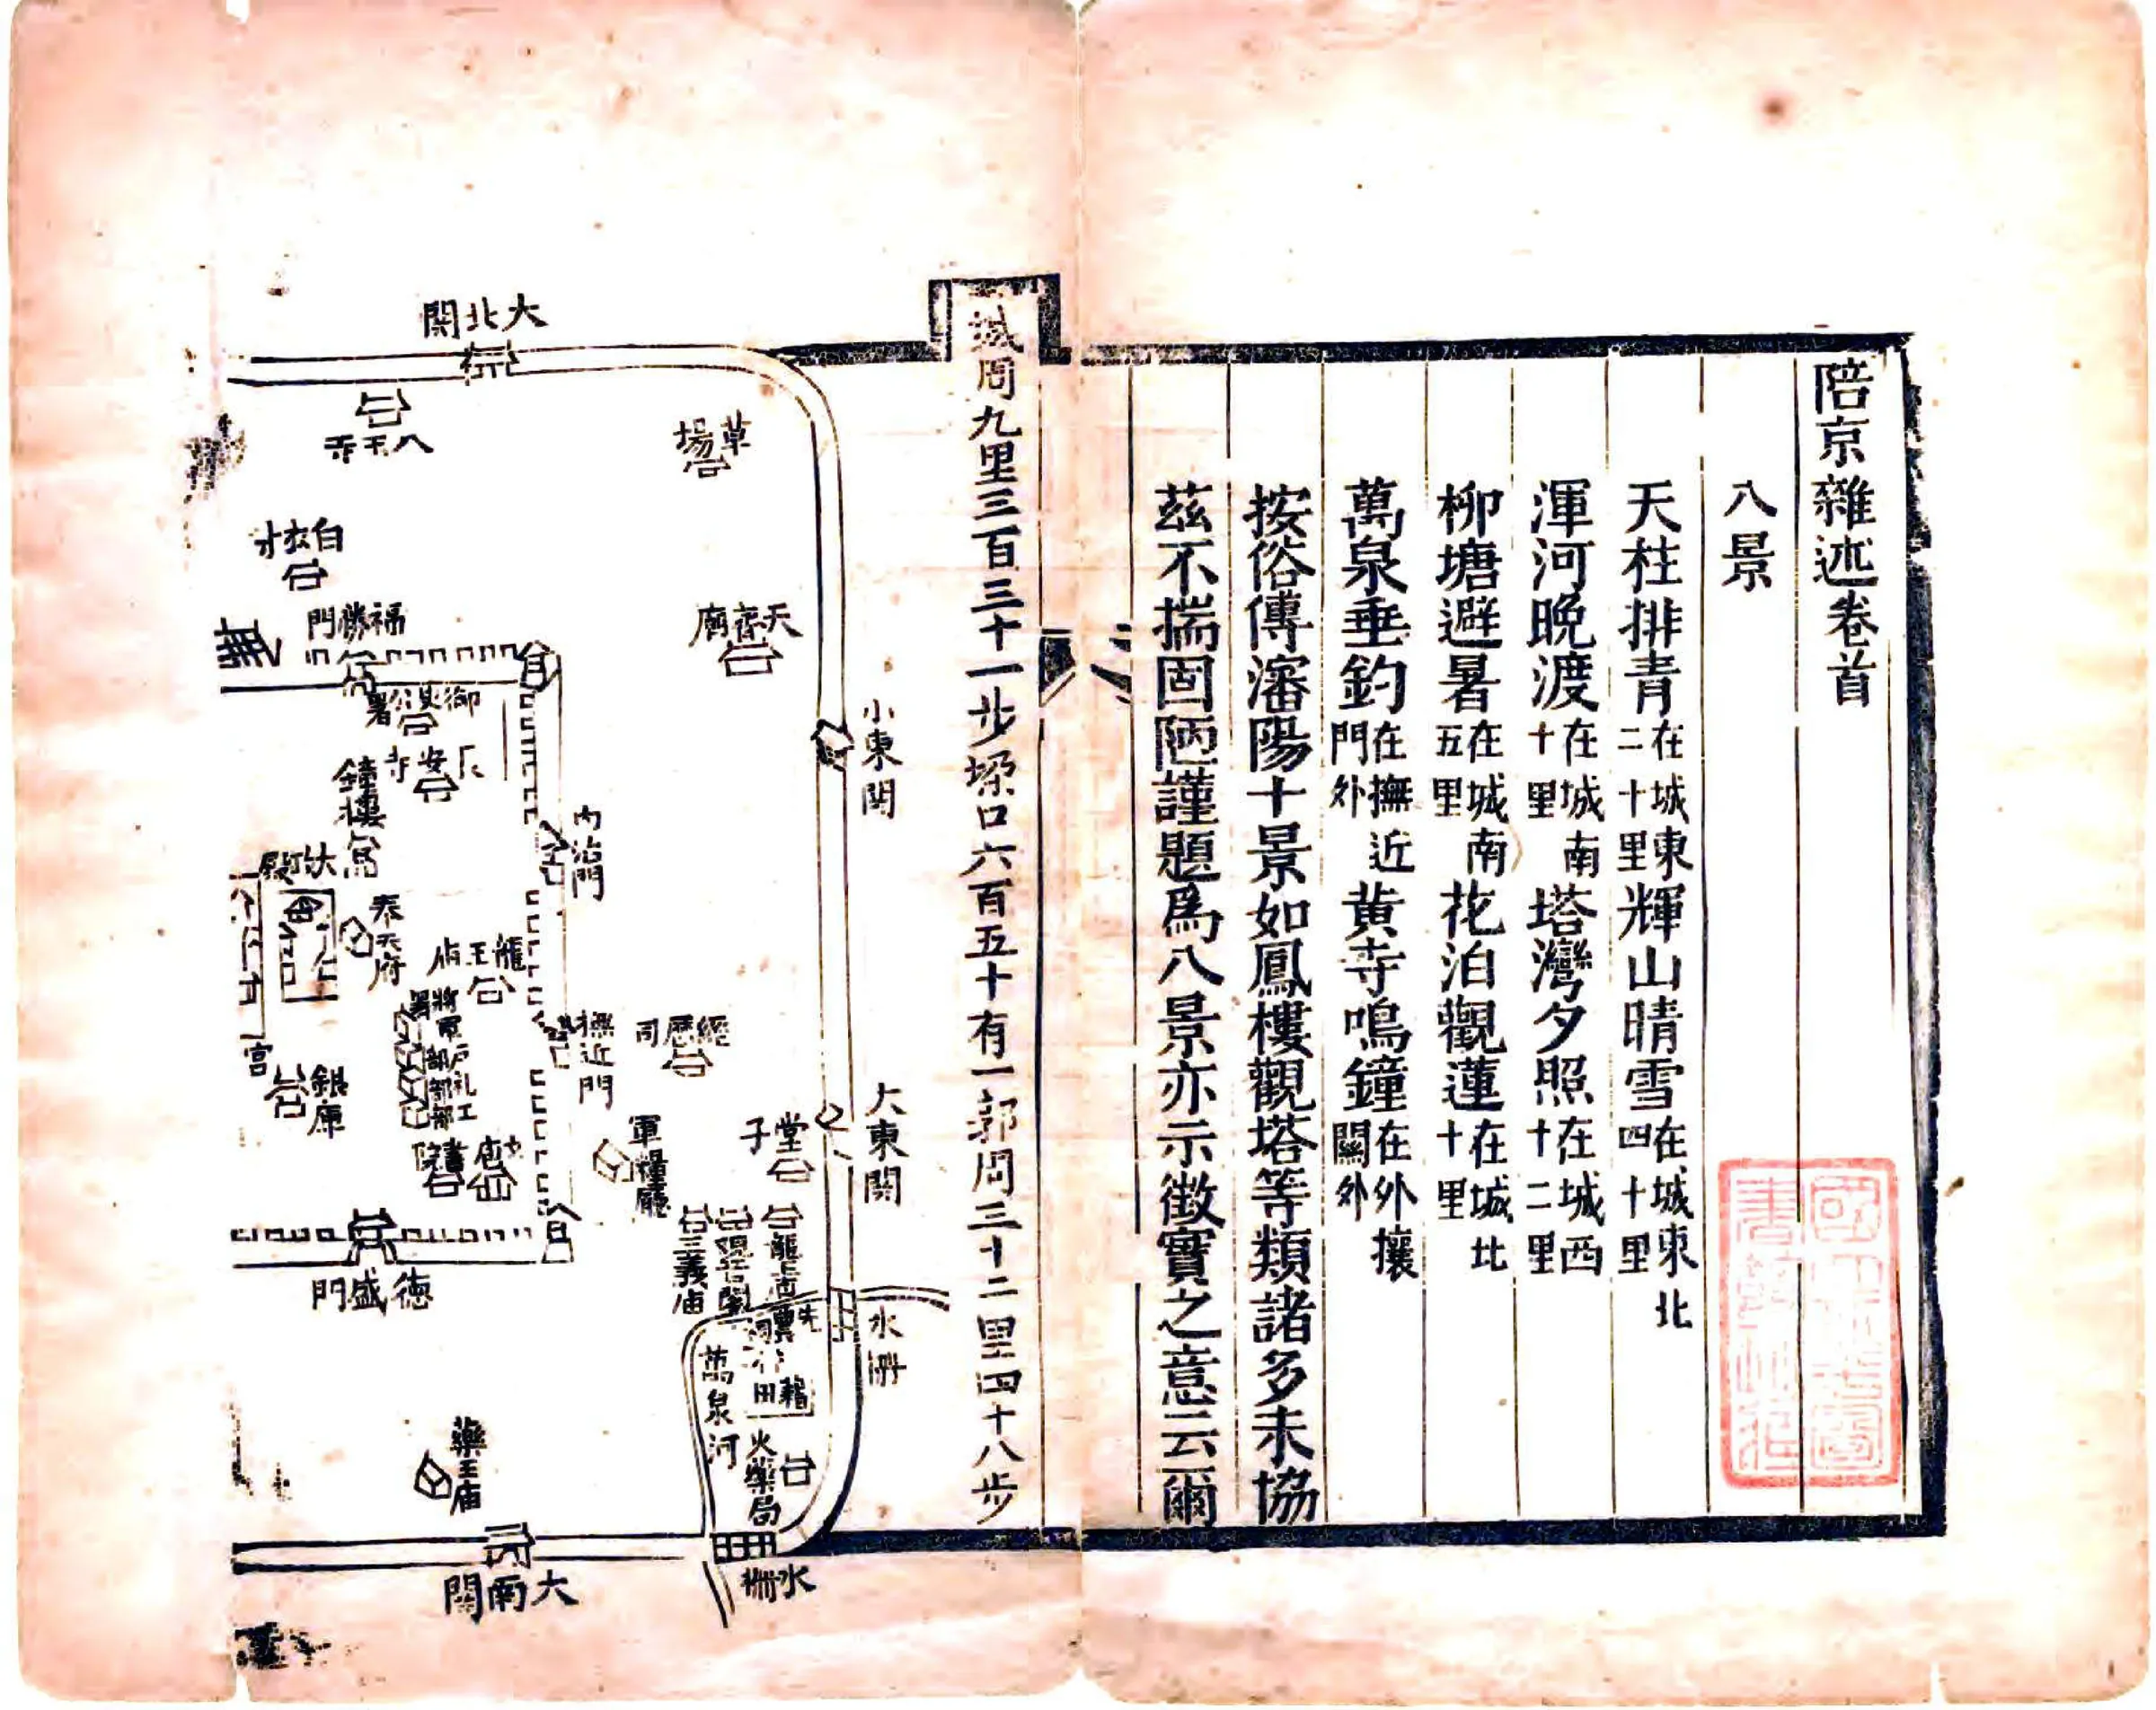 陪京雜述卷首
八景
天柱排青在城東二十里輝山晴雪在城東北四十里
渾河晚渡在城南十里塔灣夕照在城西十二里
柳塘避暑在城南五里花泊觀蓮在城北十里
萬泉垂釣在撫近門外黃寺鳴鐘在外攘關外
按俗傳瀋陽十景如鳳樓觀塔等類諸多未協
茲不揣固陋謹題爲八景亦示徵實之意云爾
城周九里三百三十一步垜口六百五十有一郭周三十二里四十八步
大北關
草場
天齊廟
小東関
大東關
水冊
水柵
大南關
福勝門
御史公署
鐘樓
內治門
大政殿
奉天府
龍王庙
將軍署
戶部
礼部
工部
撫近門
經歷司
宮
銀庫
書院
軍糧廳
堂子
三義庙
德盛門
萬泉河
藉田
火藥局
藥王庙